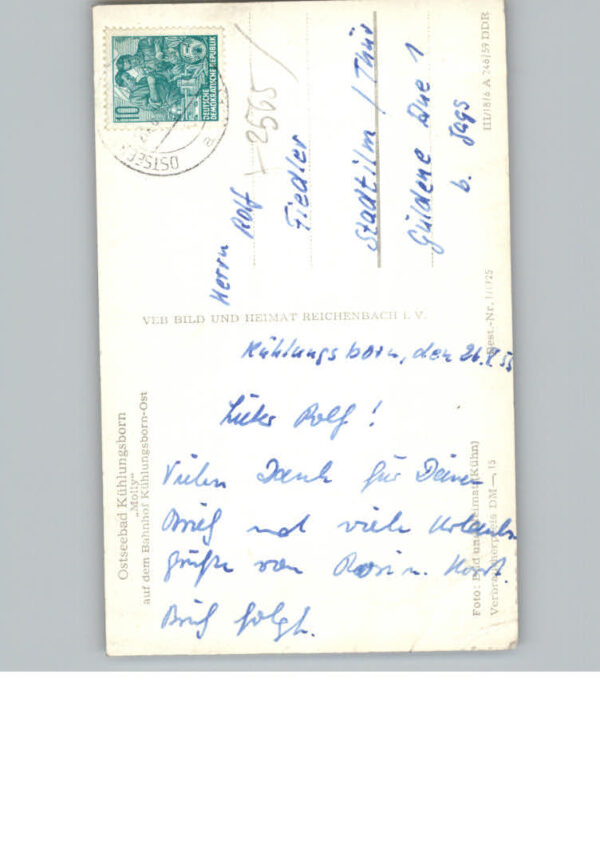 10
DEUTSCHE
DEMOKRATISCHE REPUBLIK
OSTSEE
a
2565
Herrn Rolf
Fiedler
Stadtilm / Thür
Güldene Aue 1
b. Jags
III/18/6 A 748/59 DDR
VEB BILD UND HEIMAT REICHENBACH i. V.
Best.-Nr.
Ostseebad Kühlungsborn
„Molly“
auf dem Bahnhof Kühlungsborn-Ost
Kühlungsborn, den 26.
Lieber Rolf!
Vielen Dank für Deinen
Brief und viele Urlaubs
grüße von
Brief folgt.
Foto: Bild und Heimat (Kühn)
Verbraucherpreis DM —,15